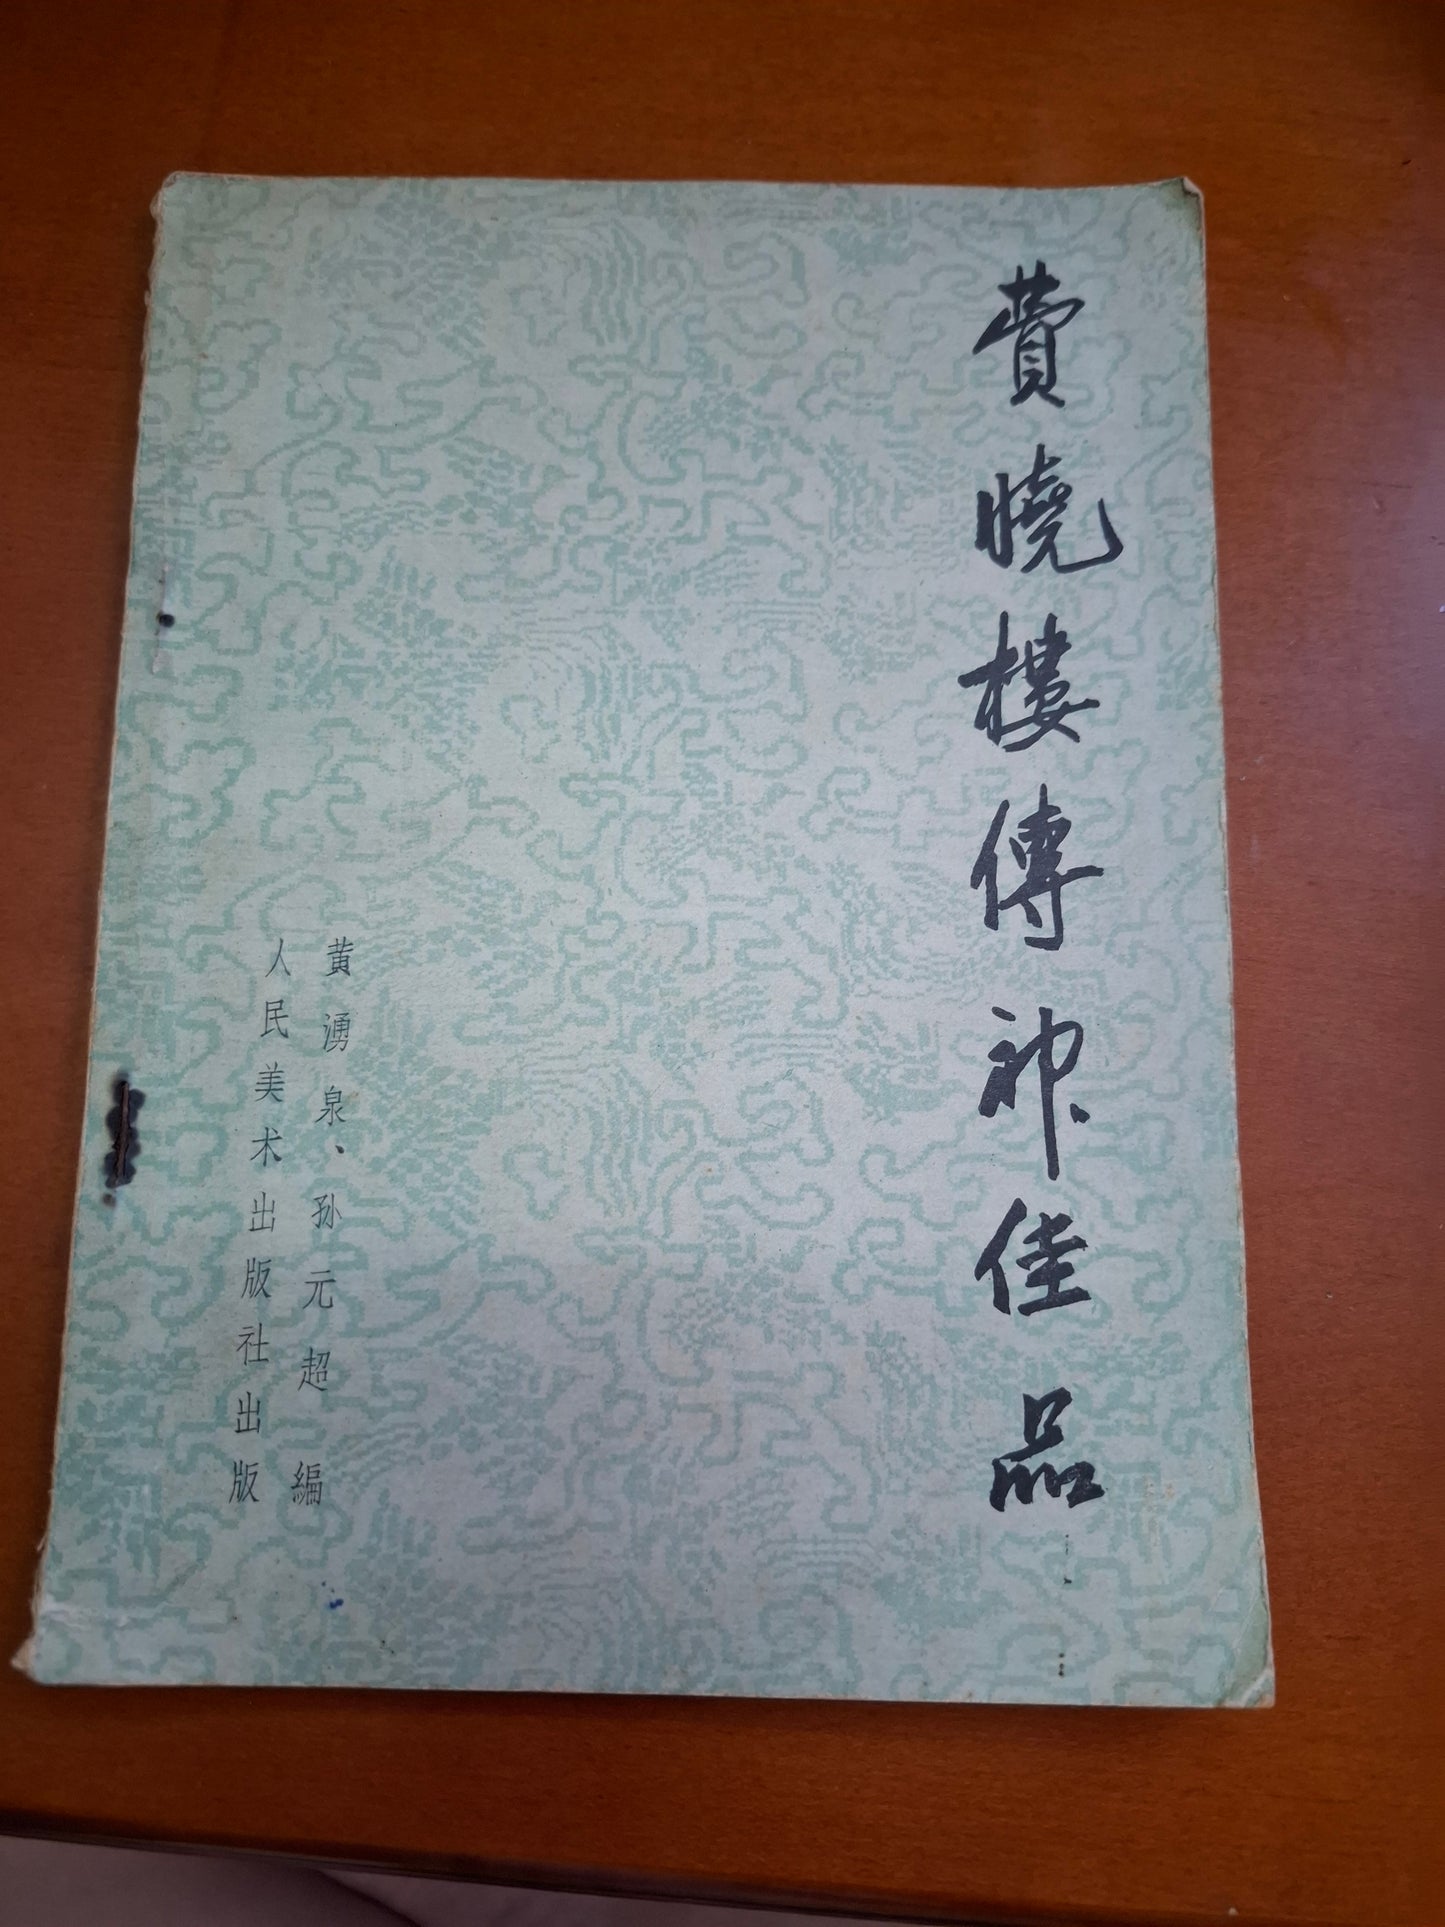 費曉樓傳神佳品
黄湧泉、孙元超編
人民美术出版社出版